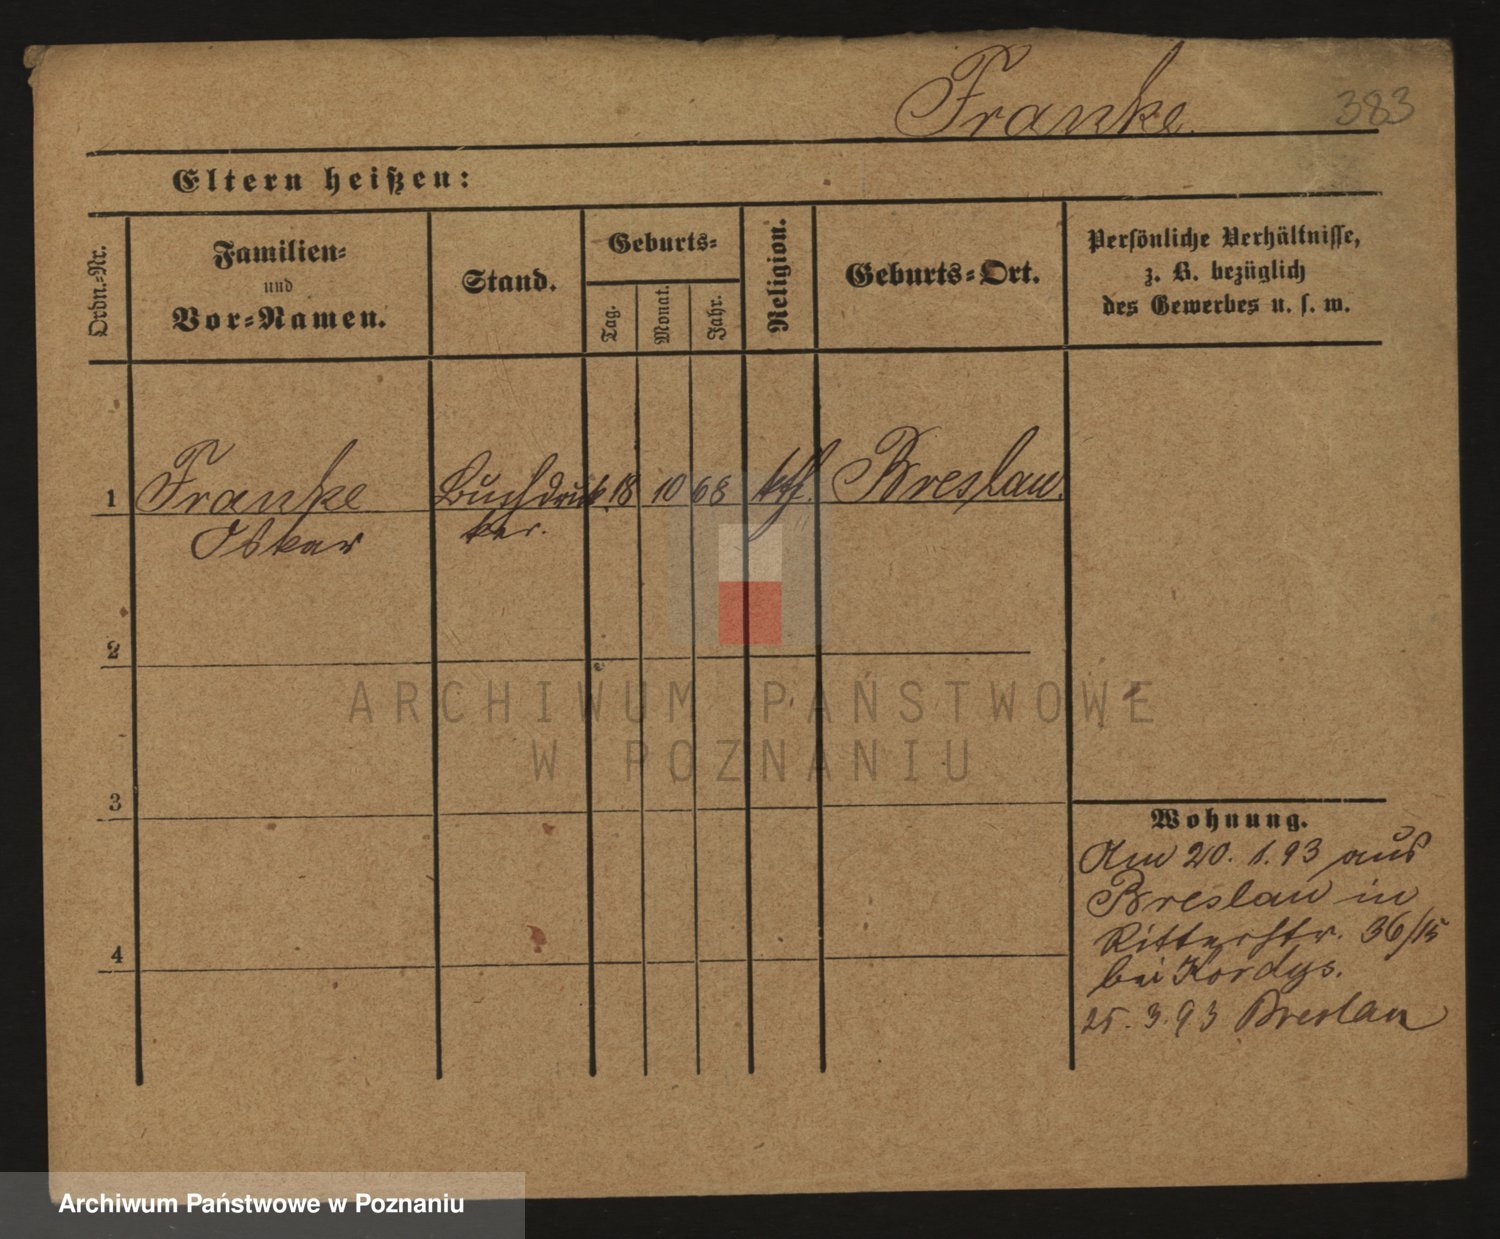 Franke
383
Eltern heißen:
Ordn.-Nr.
Familien-
und
Vor-Namen.
Stand.
Geburts-
Tag.
Monat.
Jahr.
Religion.
Geburts-Ort.
Persönliche Verhältnisse,
z. B. bezüglich
des Gewerbes u. s. w.
1 Franke Buchdruk 18 10 68 kth. Breslau.
Oskar ker.
2
3
4
Wohnung.
Am 20. 1. 93 aus
Breslau in
Ritterstr. 36/15
bei Kordys.
25. 3. 93 Breslau
ARCHIWUM PAŃSTWOWE
W POZNANIU
Archiwum Państwowe w Poznaniu